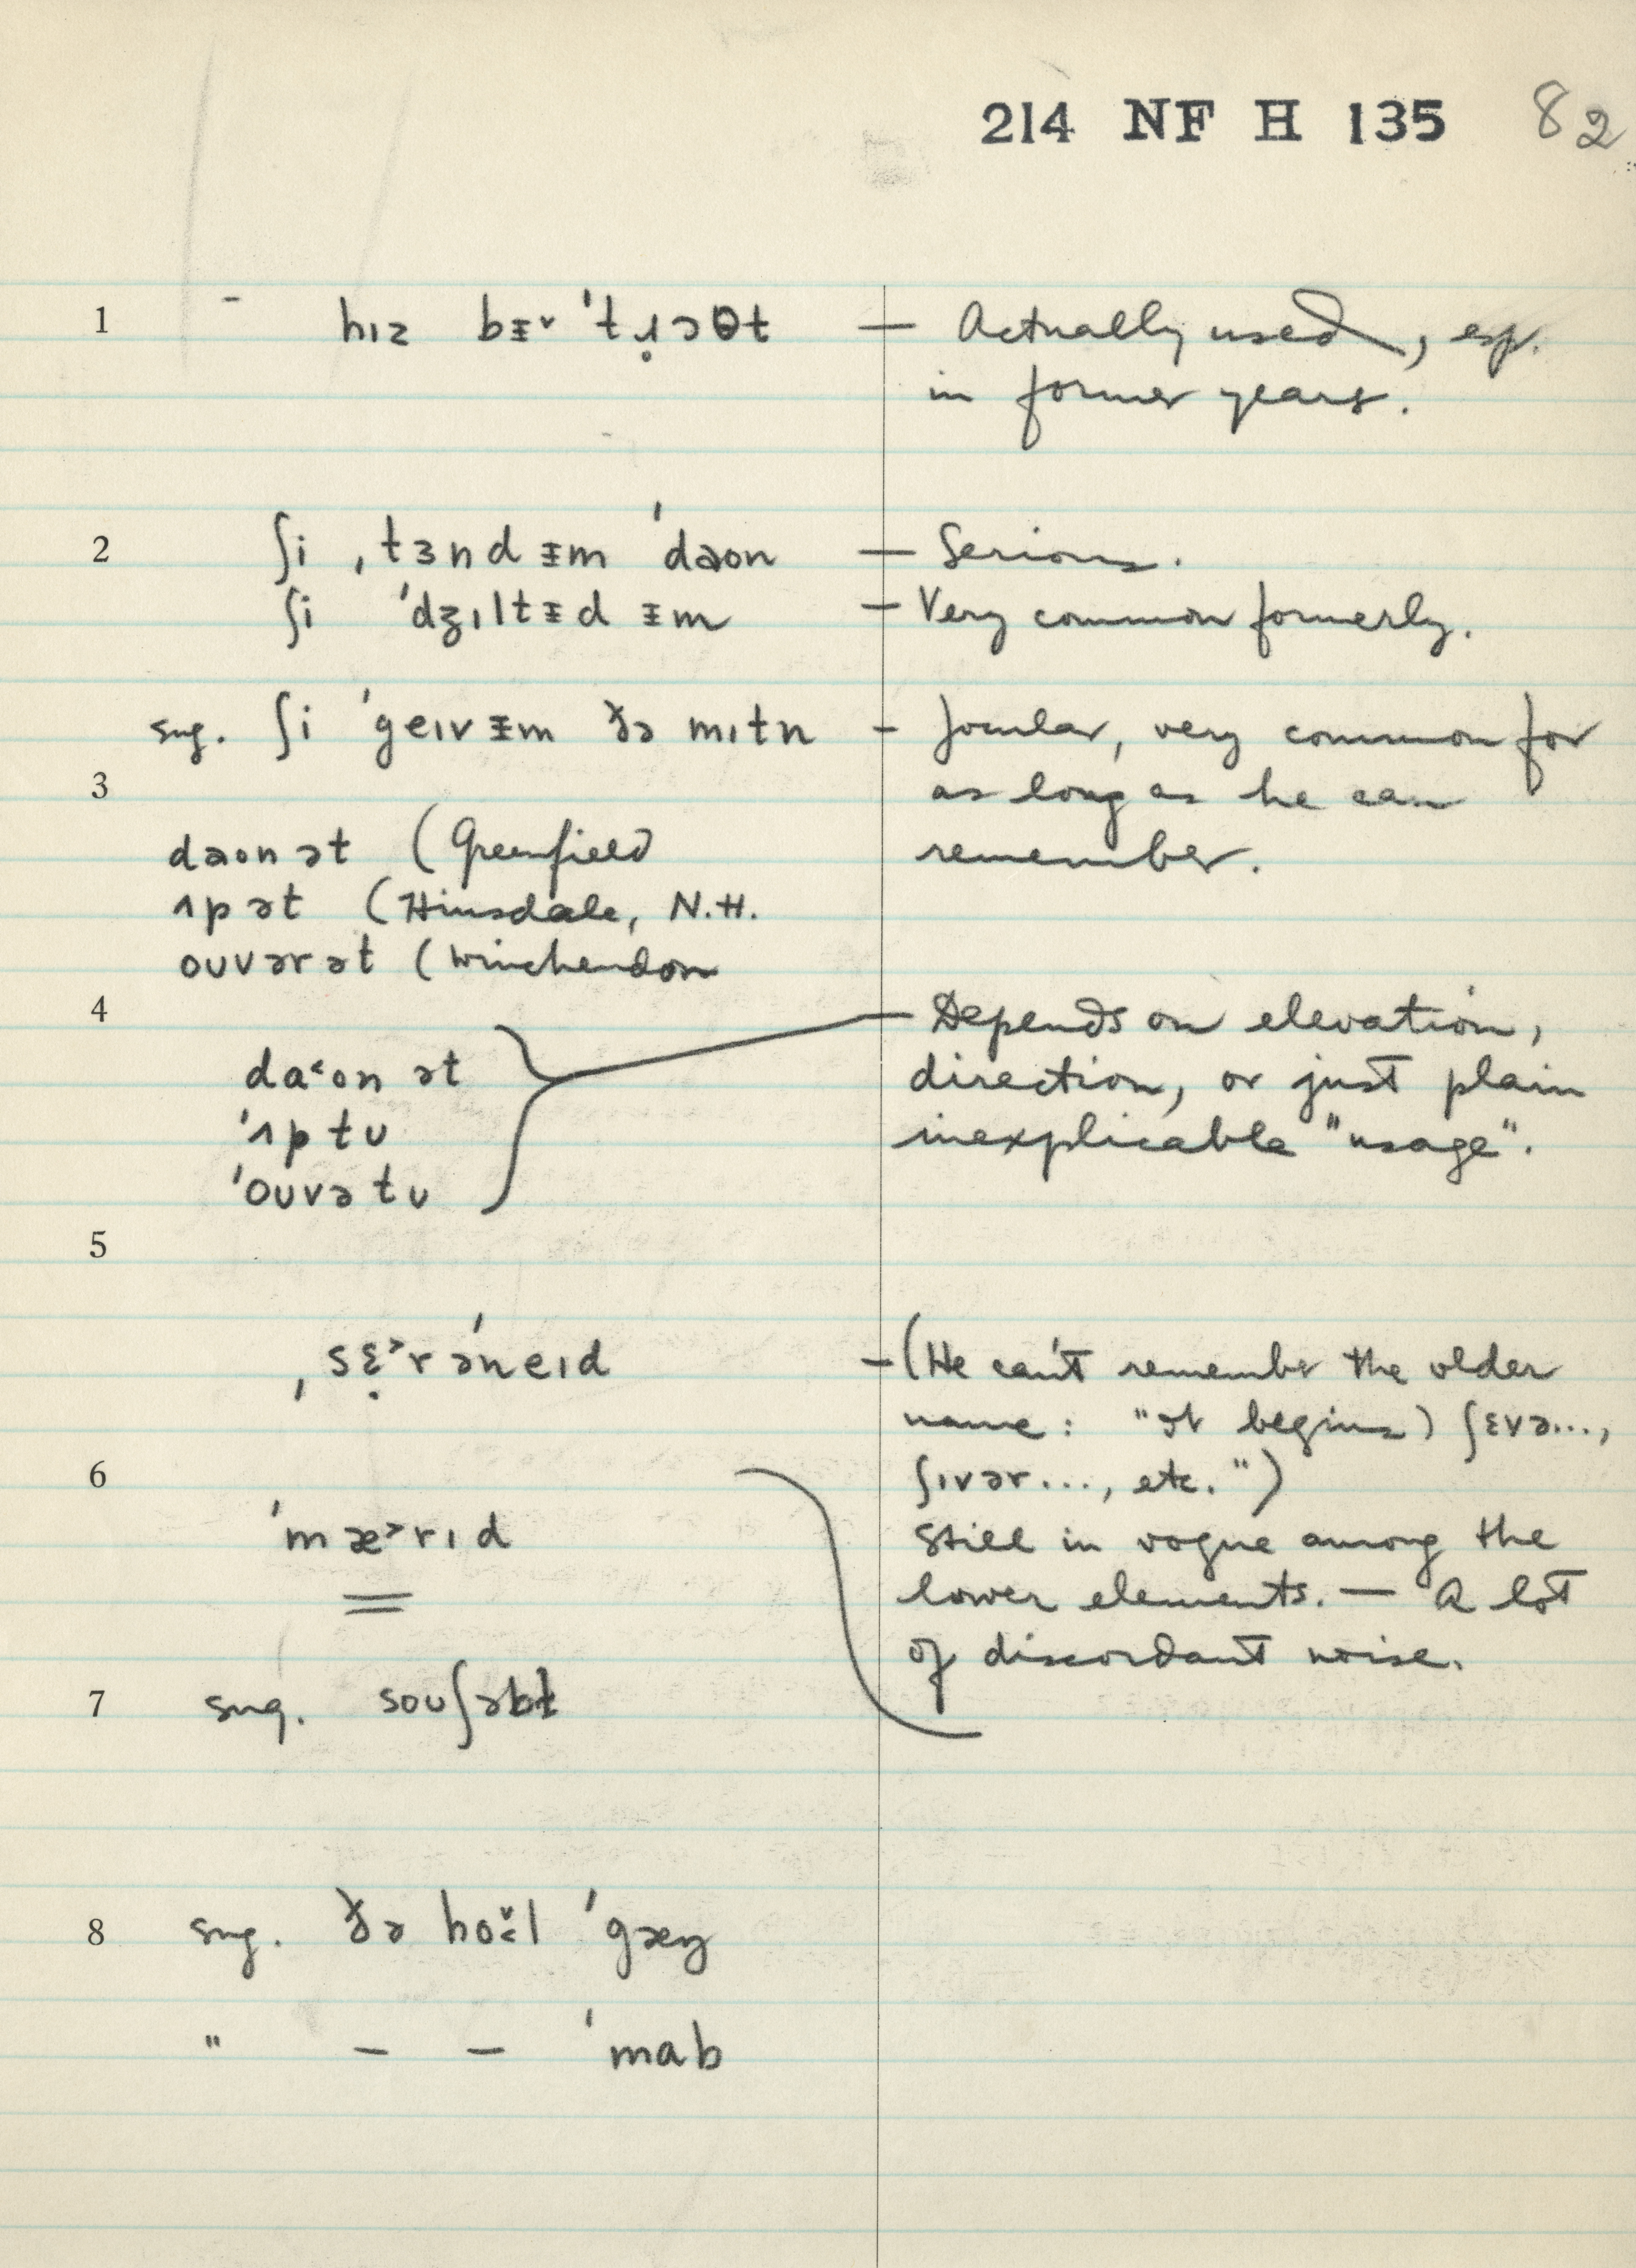 214 NF H 135 82
1 hɪz bᵻ˅ ˈtɹ̥ɔθt — Actually used, esp.
in former years.
2 ʃi ˌtɜnd ᵻm ˈdaon — Serious.
ʃi ˈdʒɪltᵻd ᵻm — Very common formerly.
sug. ʃi ˈgeɪv ᵻm ðə mɪtn — Jocular, very common for
3 as long as he can
daon ət (Greenfield remember.
ʌp ət (Hinsdale, N.H.
ouvər ət (Winchendon
4 — Depends on elevation,
da˂on ət direction, or just plain
ˈʌp tʊ inexplicable "usage".
ˈoʊvə tʊ
5
ˌsɛ̣˃rəˈneɪd — (He can't remember the older
name: "It begins) ʃɛvə...,
6 ʃɪvər..., etc.")
ˈmæ˃rɪd Still in vogue among the
= lower elements. — A lot
of discordant noise.
7 sug. soʊʃəbɫ
8 sug. ðə hol ˈgæŋ
" – – ˈmab